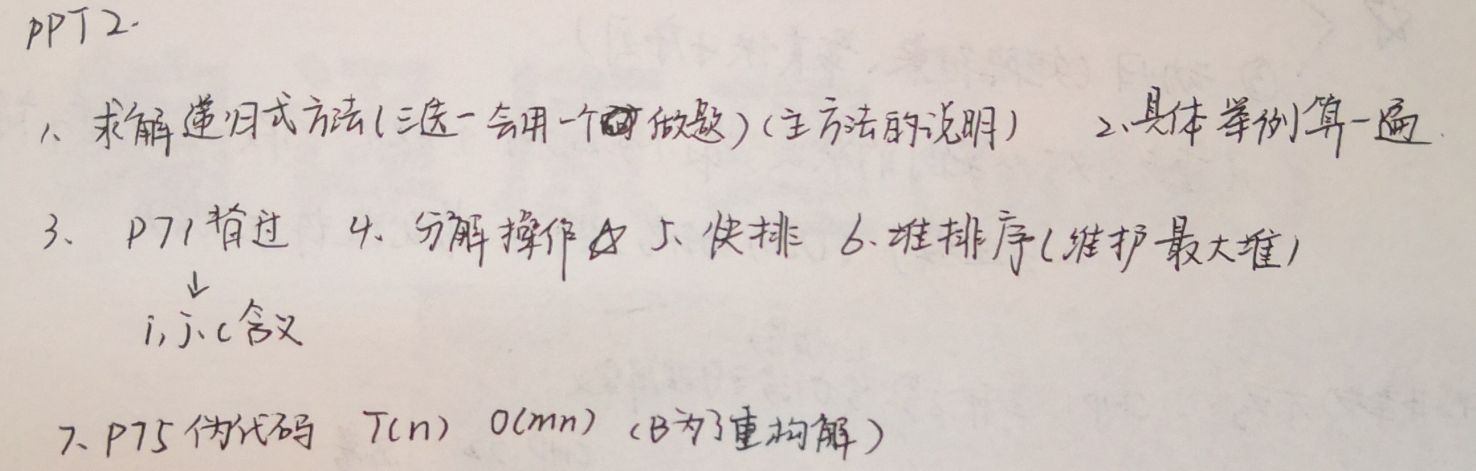 PPT2.
1、求解递归式方法(三选一会用一个做题)(主方法的说明) 2、具体举例算一遍.
3、P71背过 4、分解操作☆ 5、快排 6、堆排序(维护最大堆)
↓
i,j、c含义
7、P75伪代码 T(n) O(mn) (B为了重构解)